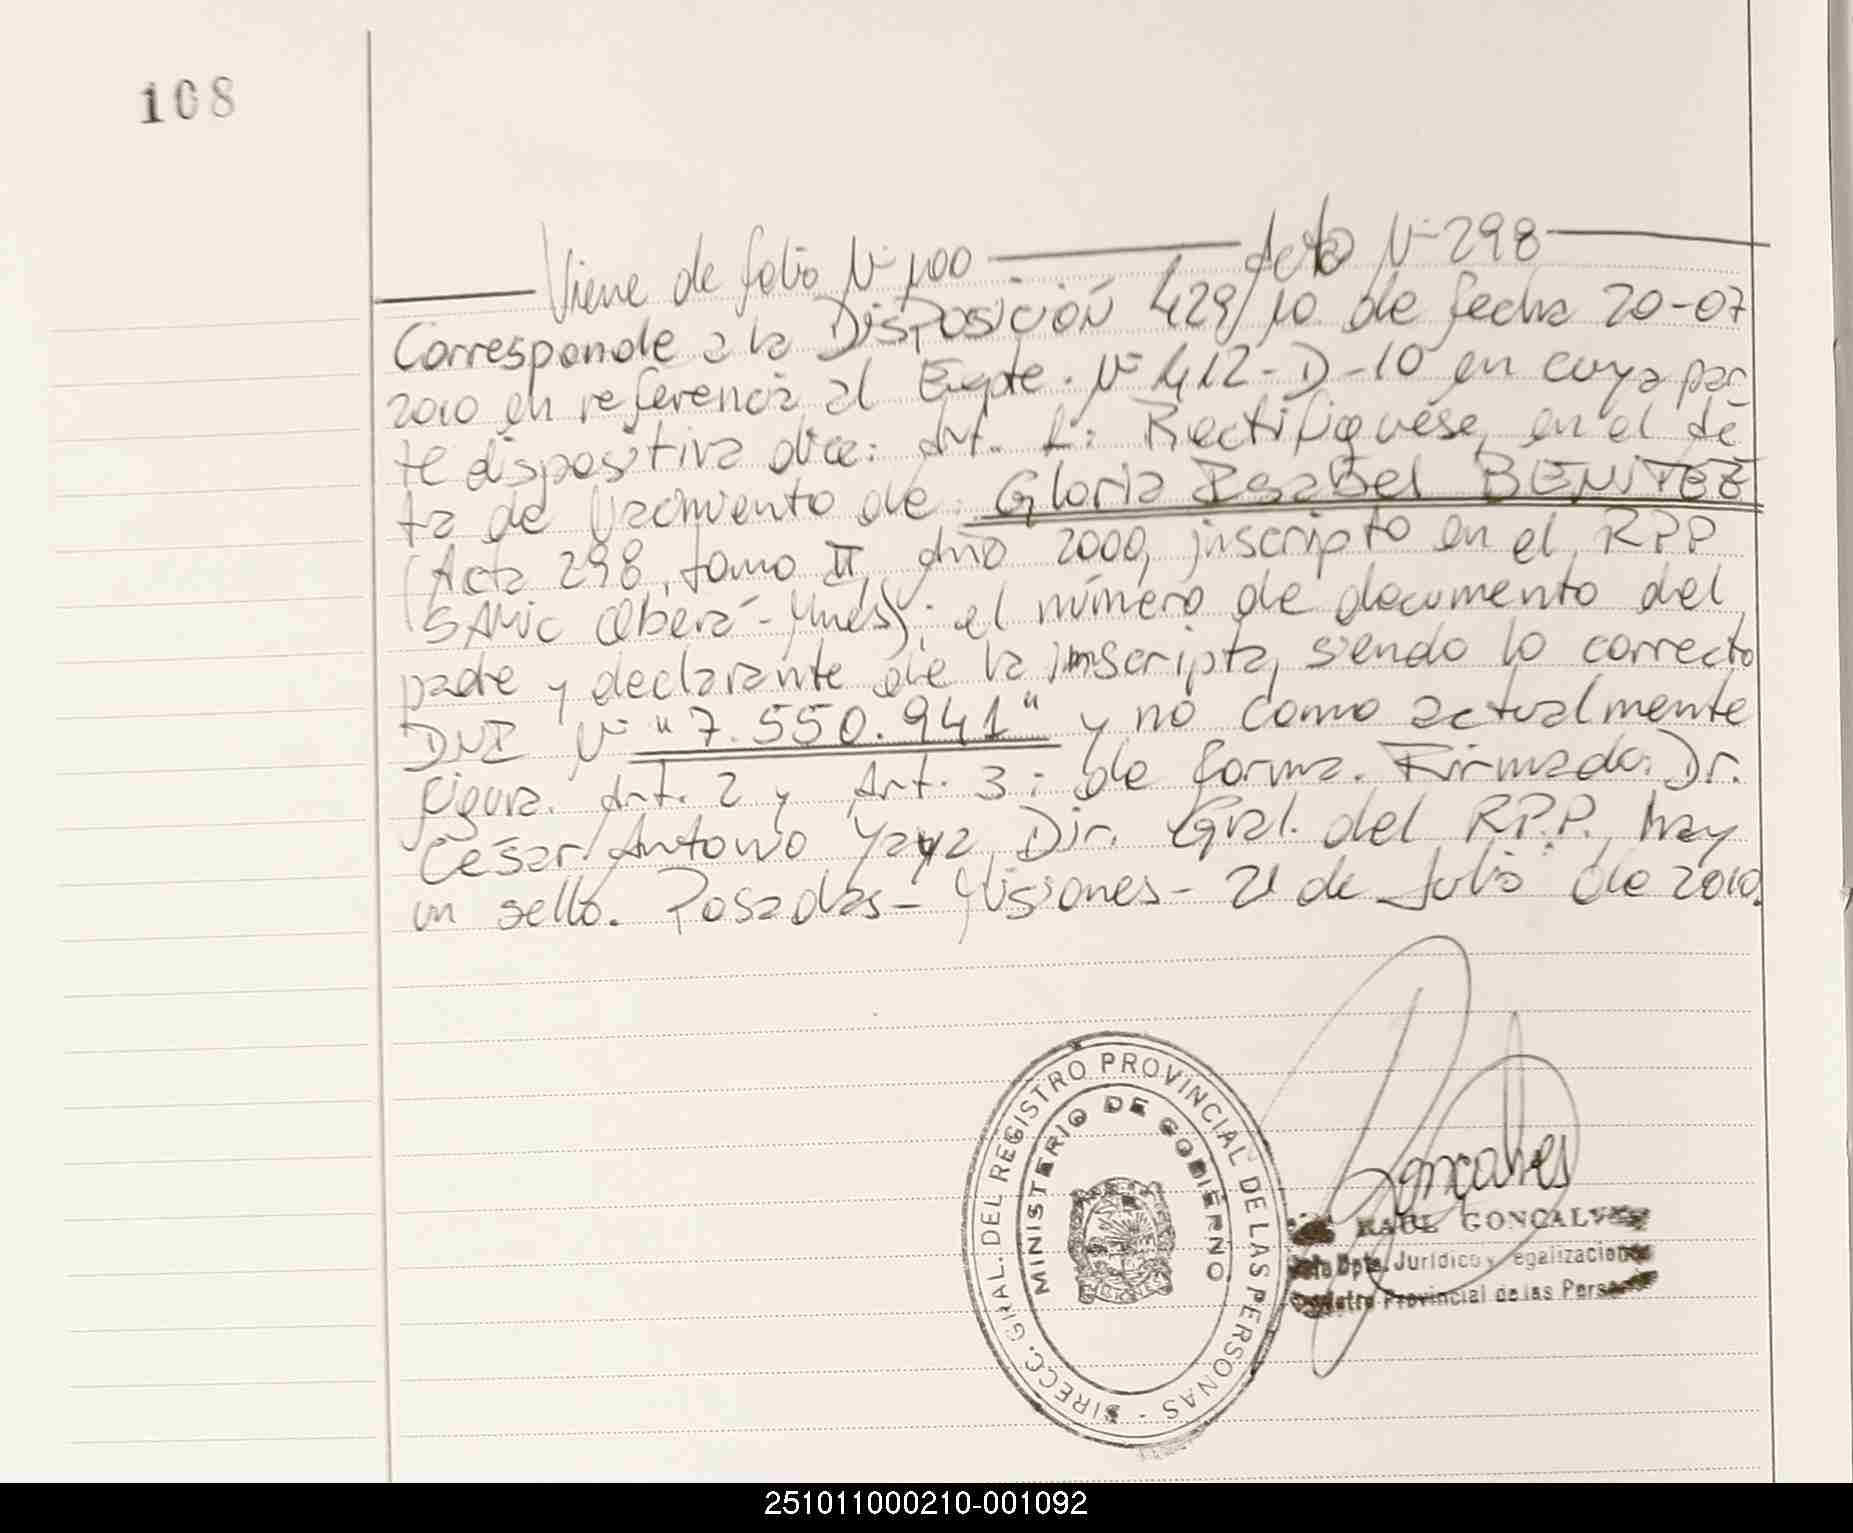 108
Viene de folio Nº 100 Acta Nº 298
Corresponde a la Disposición 429/10 de fecha 20-07
2010 en referencia al Expte. Nº 412-D-10 en cuya par
te dispositiva dice: Art. 1: Rectifíquese, en el Ac
ta de Nacimiento de: Gloria Isabel BENITEZ
(Acta 298, tomo II, Año 2000, inscripto en el RPP
SAMIC Oberá-Mnes); el número de documento del
padre y declarante de la inscripta, siendo lo correcto
DNI Nº "7.550.941" y no como actualmente
figura. Art. 2 y Art. 3: de forma. Firmado: Dr.
César Antonio Yaya, Dir. Gral. del R.P.P., hay
un sello. Posadas-Misiones- 21 de Julio de 2010.
DIRECC. GRAL. DEL REGISTRO PROVINCIAL DE LAS PERSONAS -
MINISTERIO DE GOBIERNO
Goncalves
RAUL GONCALVES
Dpto. Jurídico y Legalizaciones
Registro Provincial de las Personas
251011000210-001092